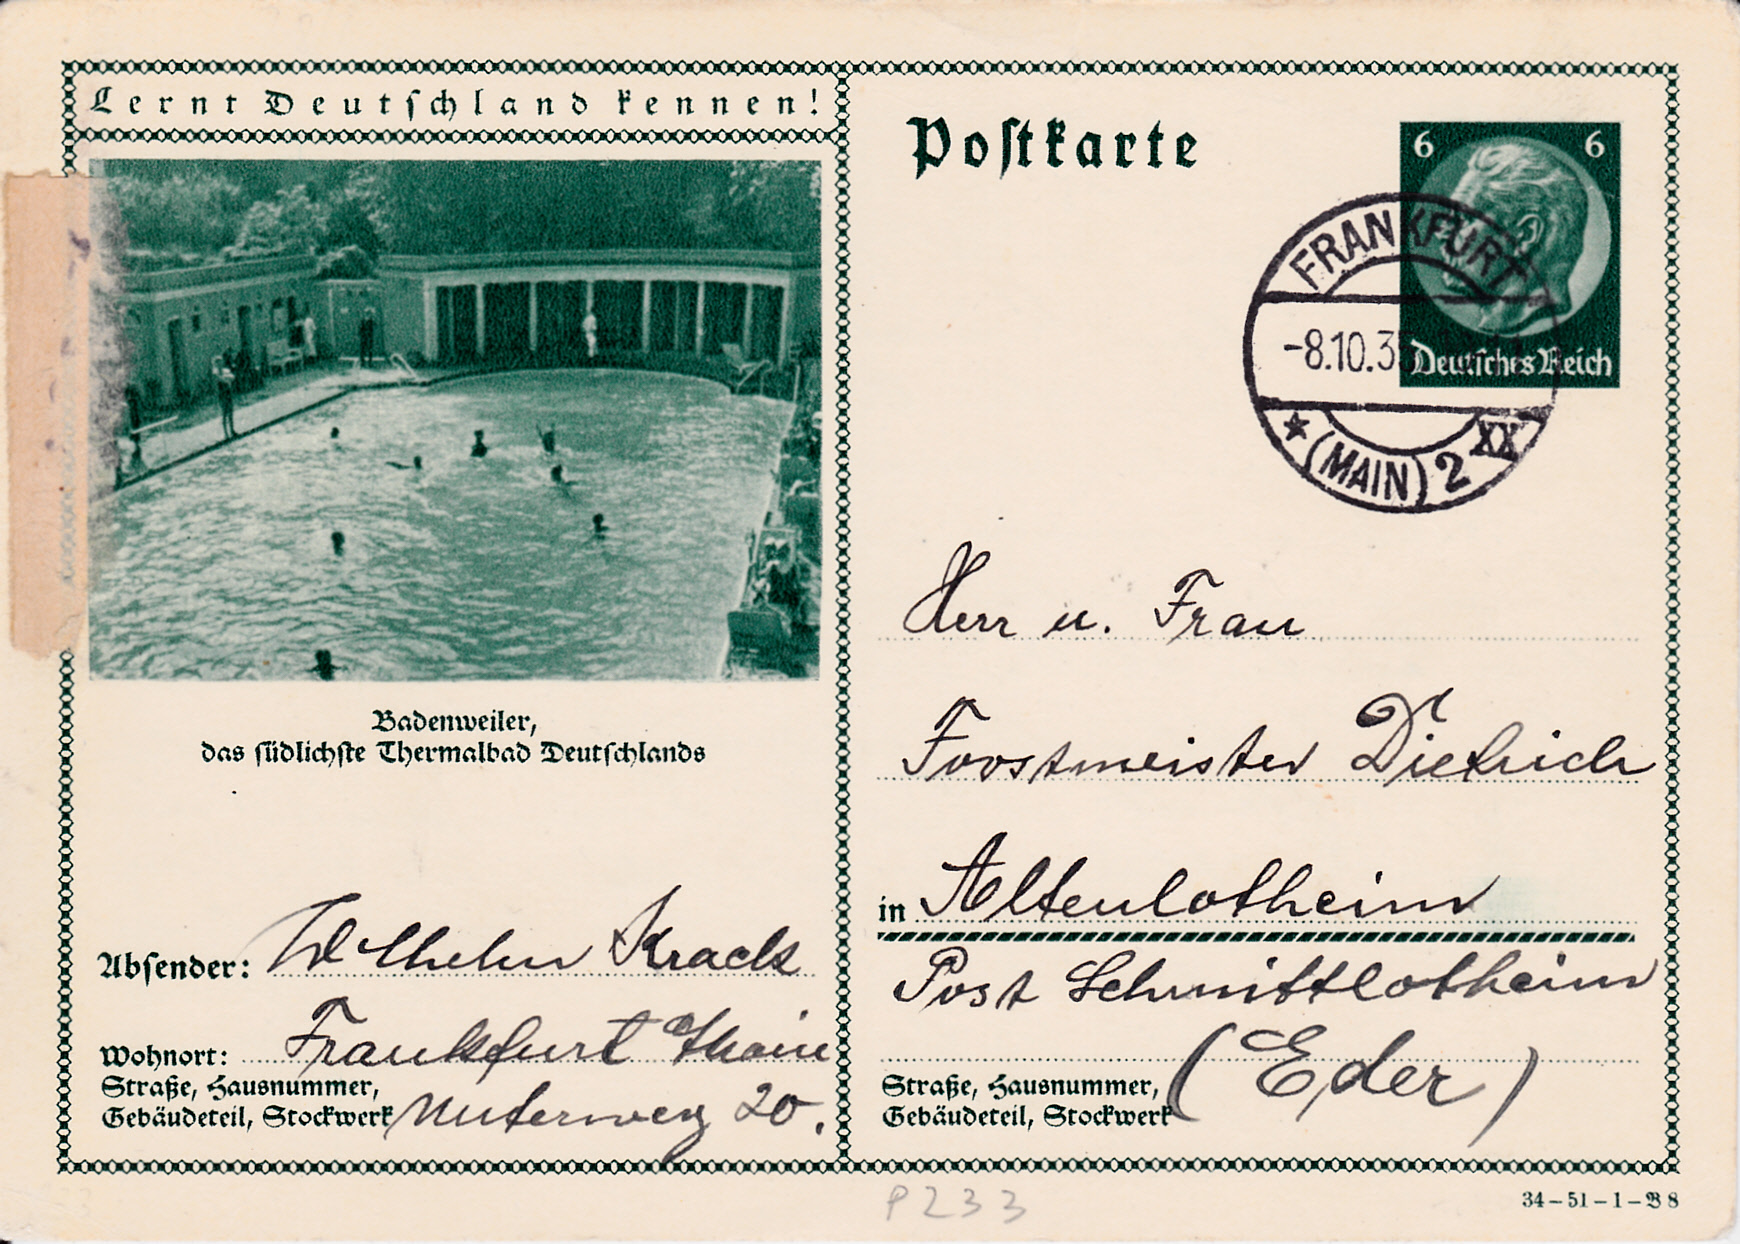 Lernt Deutschland kennen!
Badenweiler,
das südlichste Thermalbad Deutschlands
Absender: Wilhelm Krack
Wohnort: Frankfurt Main
Straße, Hausnummer,
Gebäudeteil, Stockwerk Unterweg 20.
Postkarte
6 6
Deutsches Reich
FRANKFURT
-8.10.3
* (MAIN) 2 XX
Herr u. Frau
Forstmeister Dietrich
in Altenlotheim
Post Schmittlotheim
(Eder)
Straße, Hausnummer,
Gebäudeteil, Stockwerk
P 233
34-51-1-B 8